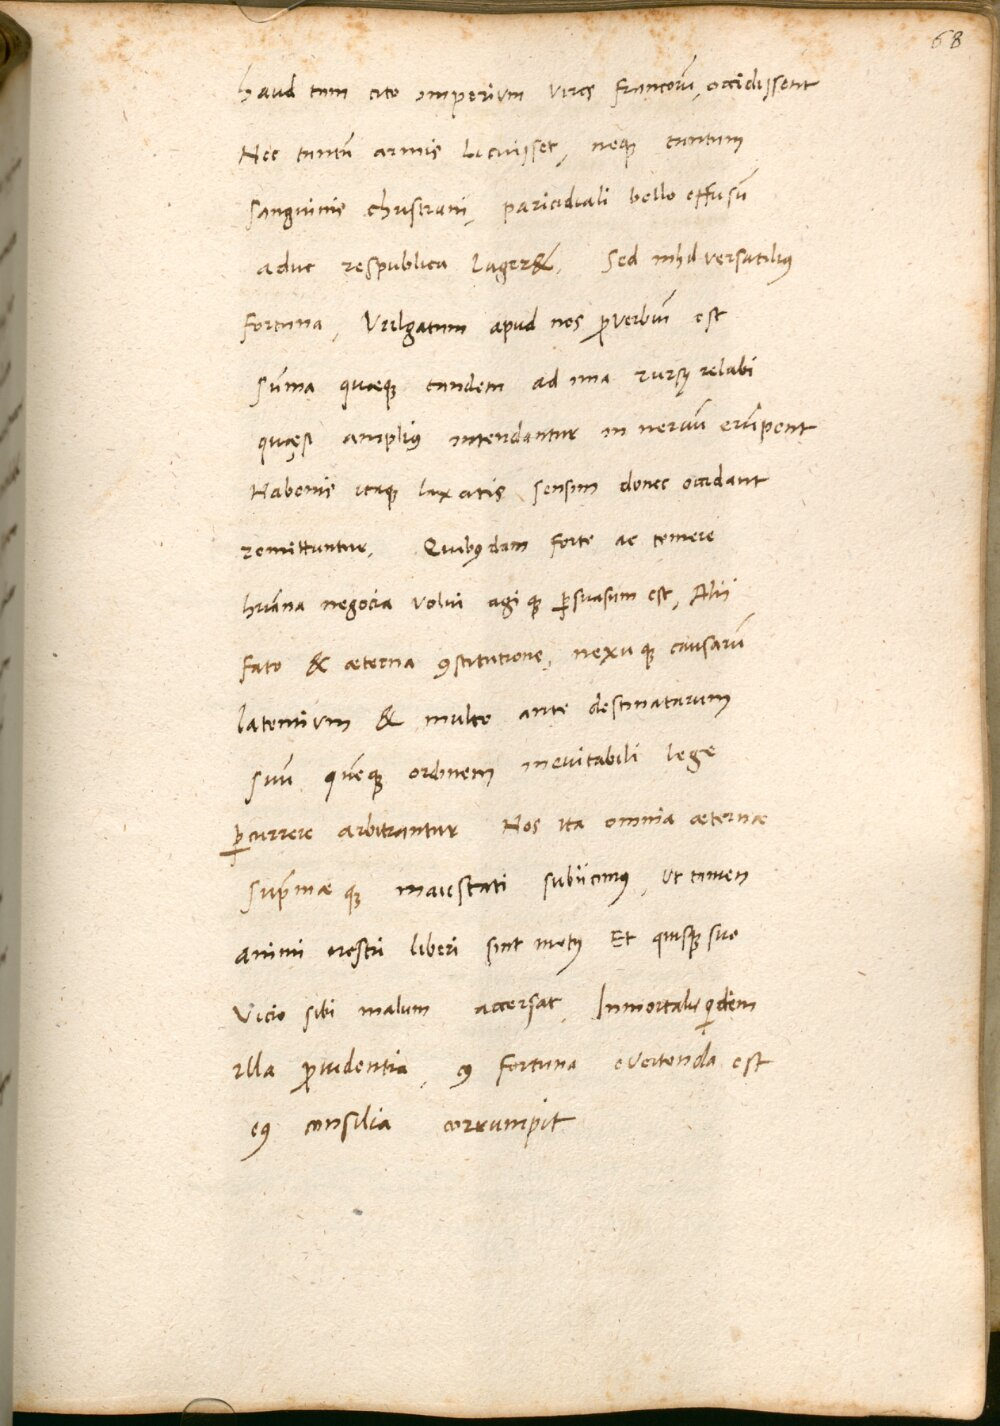 68
haud tam cito imperium vires francorũ occidissent
Nec tantũ armis licuisset, neqꝫ tantum
sanguinis christiani, paricidiali bello effusũ
aduc respublica luger&. Sed nihil versatilius
fortuna, Vulgatum apud nos ꝓverbiũ est
sũma quæqꝫ tandem ad ima rursꝰ relabi
quæ si ampliꝰ intendantur in neruũ erũpent
Habenis itaqꝫ laxatis sensim donec occidant
remittuntur. Quibꝰdam forte ac temere
hũana negocia volui agi qꝫ ꝑsuasum est, Alii
fato & æterna ꝯstitutione, nexu qꝫ causarũ
latentium & multo ante destinatarum
suũ quẽqꝫ ordinem ineuitabili lege
ꝑcurrere arbitrantur Nos ita omnia æternæ
supr̃mæ qꝫ maiestati subiicimꝰ, ut tamen
animi nostri liberi sint motꝰ Et quisqꝫ suo
Vicio sibi malum accersat, Inmortalis qͥdem
illa ꝓuidentia, cꝰ fortuna euertenda est
eꝰ consilia corrumpit